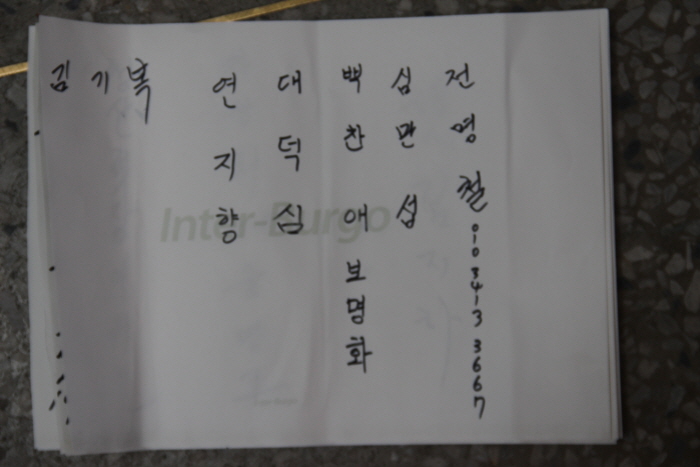 전영철 010 3413 3667
심만섭
백찬애 보명화
대덕심
연지향
김기복
Inter-Burgo